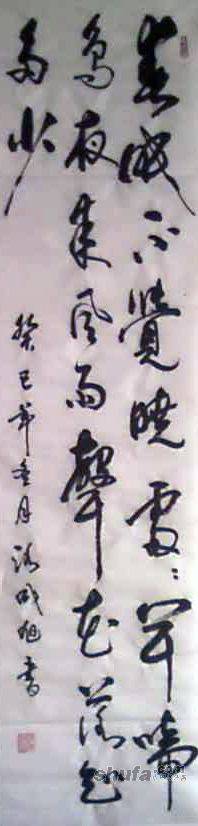 春眠不覺曉處々聞啼
鳥夜來風雨聲花落知
多少
癸巳年月成旭書
shufa